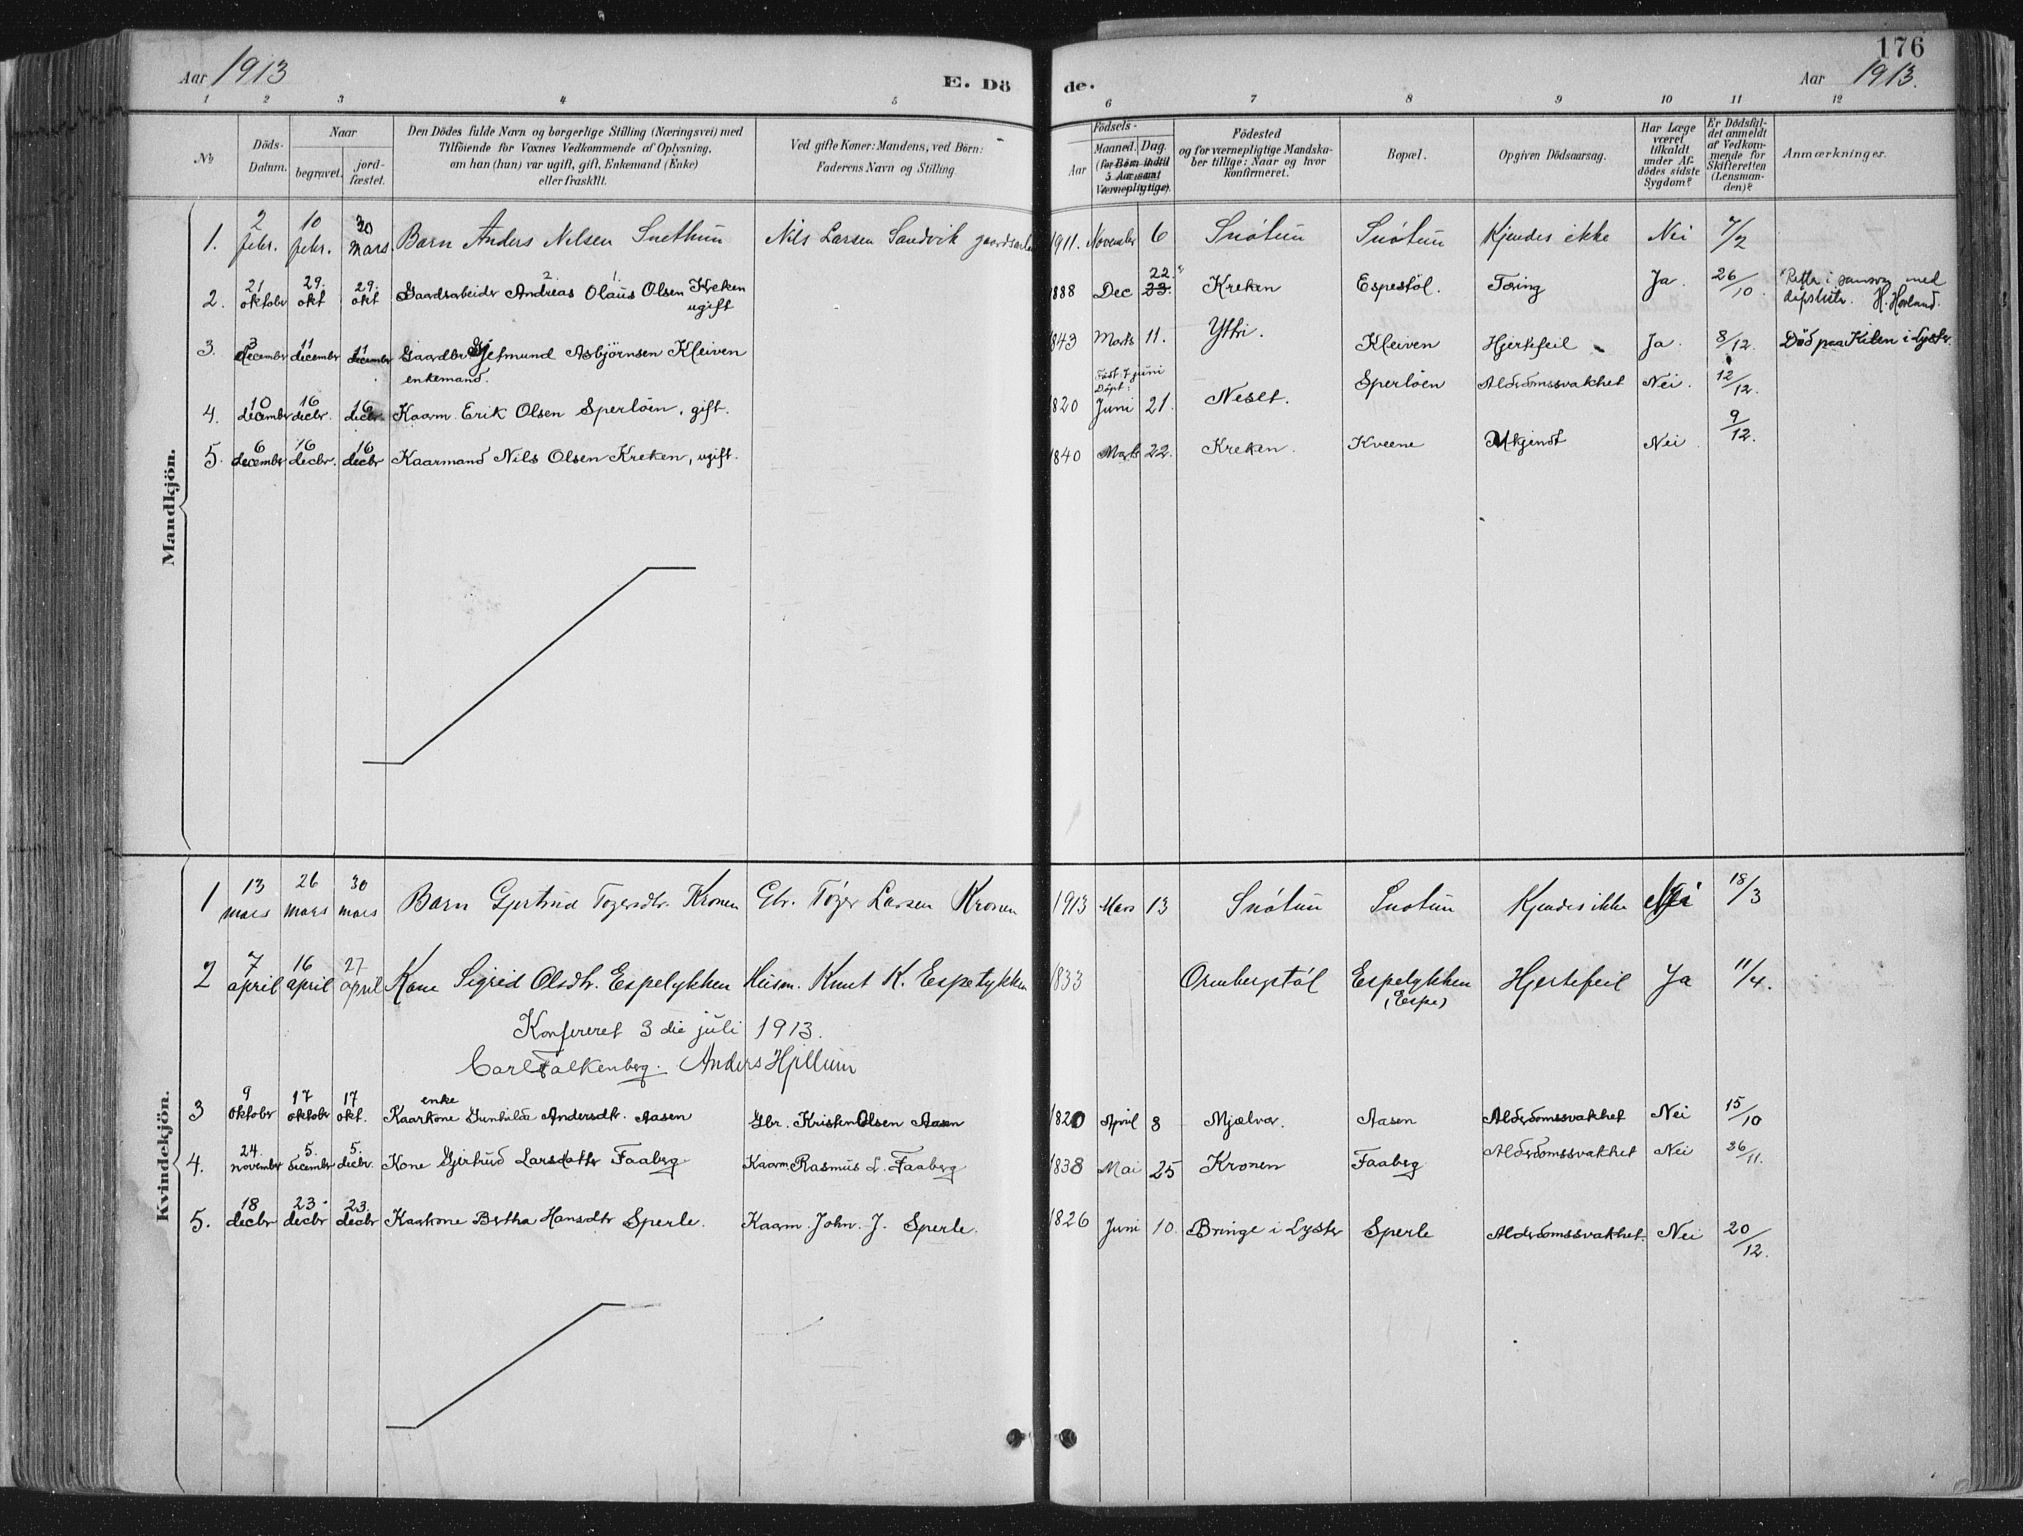 176
Aar 1913
E. Dö
de.
Aar 1913.
1 2 3 4 5 6 7 8 9 10 11 12
No
Döds-
Datum.
Naar
begravet.
jord-
fæstet.
Den Dödes fulde Navn og borgerlige Stilling (Næringsvei) med
Tilföiende for Voxnes Vedkommende af Oplysning,
om han (hun) var ugift, gift, Enkemand (Enke)
eller fraskilt.
Ved gifte Koner: Mandens, ved Börn:
Faderens Navn og Stilling
Födsels-
Aar
Maaned.
Dag.
(for Börn indtil
5 Aar samt
Værnepligtige).
Födested
og for værnepligtige Mandska-
ber tillige: Naar og hvor
konfirmeret.
Bopæl.
Opgiven Dödsaarsag.
Har Læge
været
tilkaldt
under Af-
dödes sidste
Sygdom?
Er Dödsfal-
det anmeldt
af Vedkom-
mende for
Skifteretten
(Lensman-
den)?
Anmærkninger.
Mandkjön.
1. 2 febr. 10 febr. 30 Mars Barn Anders Nilsen Snethun Nils Larsen Sandvik 1911. November 6 Snøtun Snøtun Kjendes ikke Nei 7/2
2. 21 oktober 29. okt 29. okt Gaardsarbeider Andreas Olaus Olsen Kreken
ugift
1888 Dec 22. 23. Kreken Espestøl. Tæring Ja. 26/10.
H. Hovland.
3. 3 december 11 december 11 december Gaardbr Gjetmund Asbjörnsen Kleiven
enkemand.
1843 Marts 11. Yttri. Kleiven Hjertefeil Ja. 8/12. Död paa Kilen i Lyster
4. 10 december 16 decbr. 16 decbr. Kaarm. Erik Olsen Sperløen, gift.
Født 7 juni
Döpt:
1820 Juni 21. Neset. Sperløen Alderdomssvakhet Nei. 12/12.
5. 6 december 16 decbr. 16 decbr Kaarmand Nils Olsen Kreken, ugift. 1840 Marts 22. Kreken. Kveene Ukjendt Nei 9/12.
Kvindekjön.
1 13 mars 26 mars 30 mars Barn Gjertrud Togersdtr. Kronen Gbr. Tøger Larsen Kronen 1913 Mars 13 Snøtun Snotun Kjendes ikke Nei 18/3
2 7 april 16 april 27 april Kone Sigrid Olsdtr. Espelykken Husm. Knut K. Espelykken 1833 Ormbergstøl Espelykken
(Espe)
Hjertefeil Ja 11/4.
Konfereret 3 die juli 1913.
Carl Falkenberg. Anders Hjellum
3 9 oktober 17 oktober 17 okt. enke
Kaarkone Gunhilda Andersdtr. Aasen Gbr. Kristen Olsen Aasen 1820 April 8 Mjølver. Aasen Alderdomssvakhet Nei 15/10
4. 24. november 5. december 5. decbr. Kone Gjertrud Larsdatter Faaberg Kaarm. Rasmus L. Faaberg 1838 Mai 25 Kronen Faaberg Alderdomssvakhet Nei 26/11.
5. 18 decbr 23. decbr 23. decbr Kaarkone Bertha Hansdtr Sperle. Kaarm. John. J. Sperle. 1826 Juni 10. Bringe i Lyster Sperle Alderdomssvakhet. Nei 20/12.